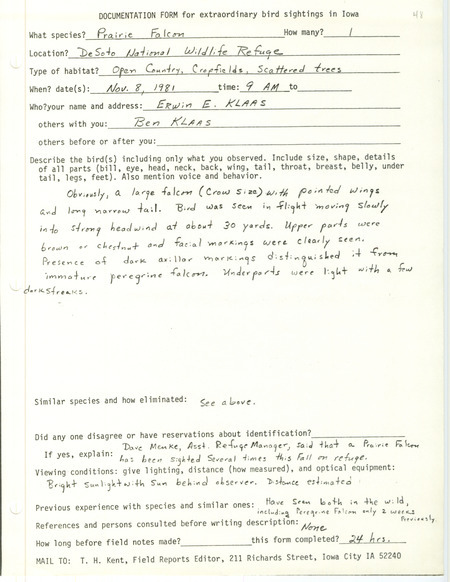 DOCUMENTATION FORM for extraordinary bird sightings in Iowa
48
What species? Prairie Falcon How many? 1
Location? DeSoto National Wildlife Refuge
Type of habitat? Open Country, Cropfields, Scattered trees
When? date(s): Nov. 8, 1981 time: 9 AM to
Who?your name and address: Erwin E. KLAAS
others with you: Ben KLAAS
others before or after you:
Describe the bird(s) including only what you observed. Include size, shape, details
of all parts (bill, eye, head, neck, back, wing, tail, throat, breast, belly, under
tail, legs, feet). Also mention voice and behavior.
Obviously, a large falcon (Crow size) with pointed wings
and long narrow tail. Bird was seen in flight moving slowly
into strong headwind at about 30 yards. Upper parts were
brown or chestnut and facial markings were clearly seen.
Presence of dark axillar markings distinguished it from
immature peregrine falcon. Underparts were light with a few
dark streaks.
Similar species and how eliminated: See above.
Did any one disagree or have reservations about identification?
If yes, explain: Dave Menke, Asst. Refuge Manager, said that a Prairie Falcon
has been sighted Several times this fall on refuge.
Viewing conditions: give lighting, distance (how measured), and optical equipment:
Bright sunlight with Sun behind observer. Distance estimated
Previous experience with species and similar ones: Have seen both in the wild,
including Peregrine Falcon only 2 weeks
previously.
References and persons consulted before writing description: None
How long before field notes made? this form completed? 24 hrs.
MAIL TO: T. H. Kent, Field Reports Editor, 211 Richards Street, Iowa City IA 52240